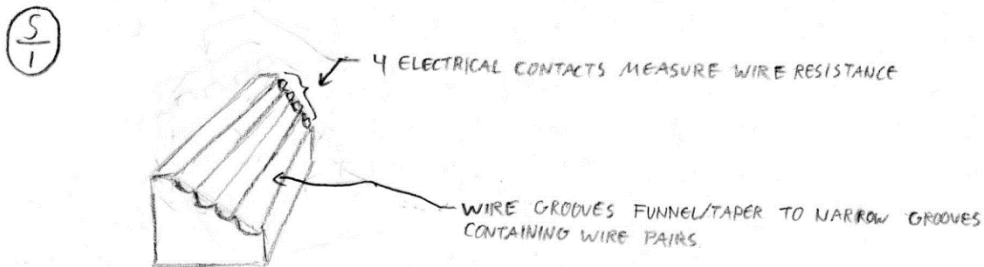 S
1
4 ELECTRICAL CONTACTS MEASURE WIRE RESISTANCE
WIRE GROOVES FUNNEL/TAPER TO NARROW GROOVES
CONTAINING WIRE PAIRS